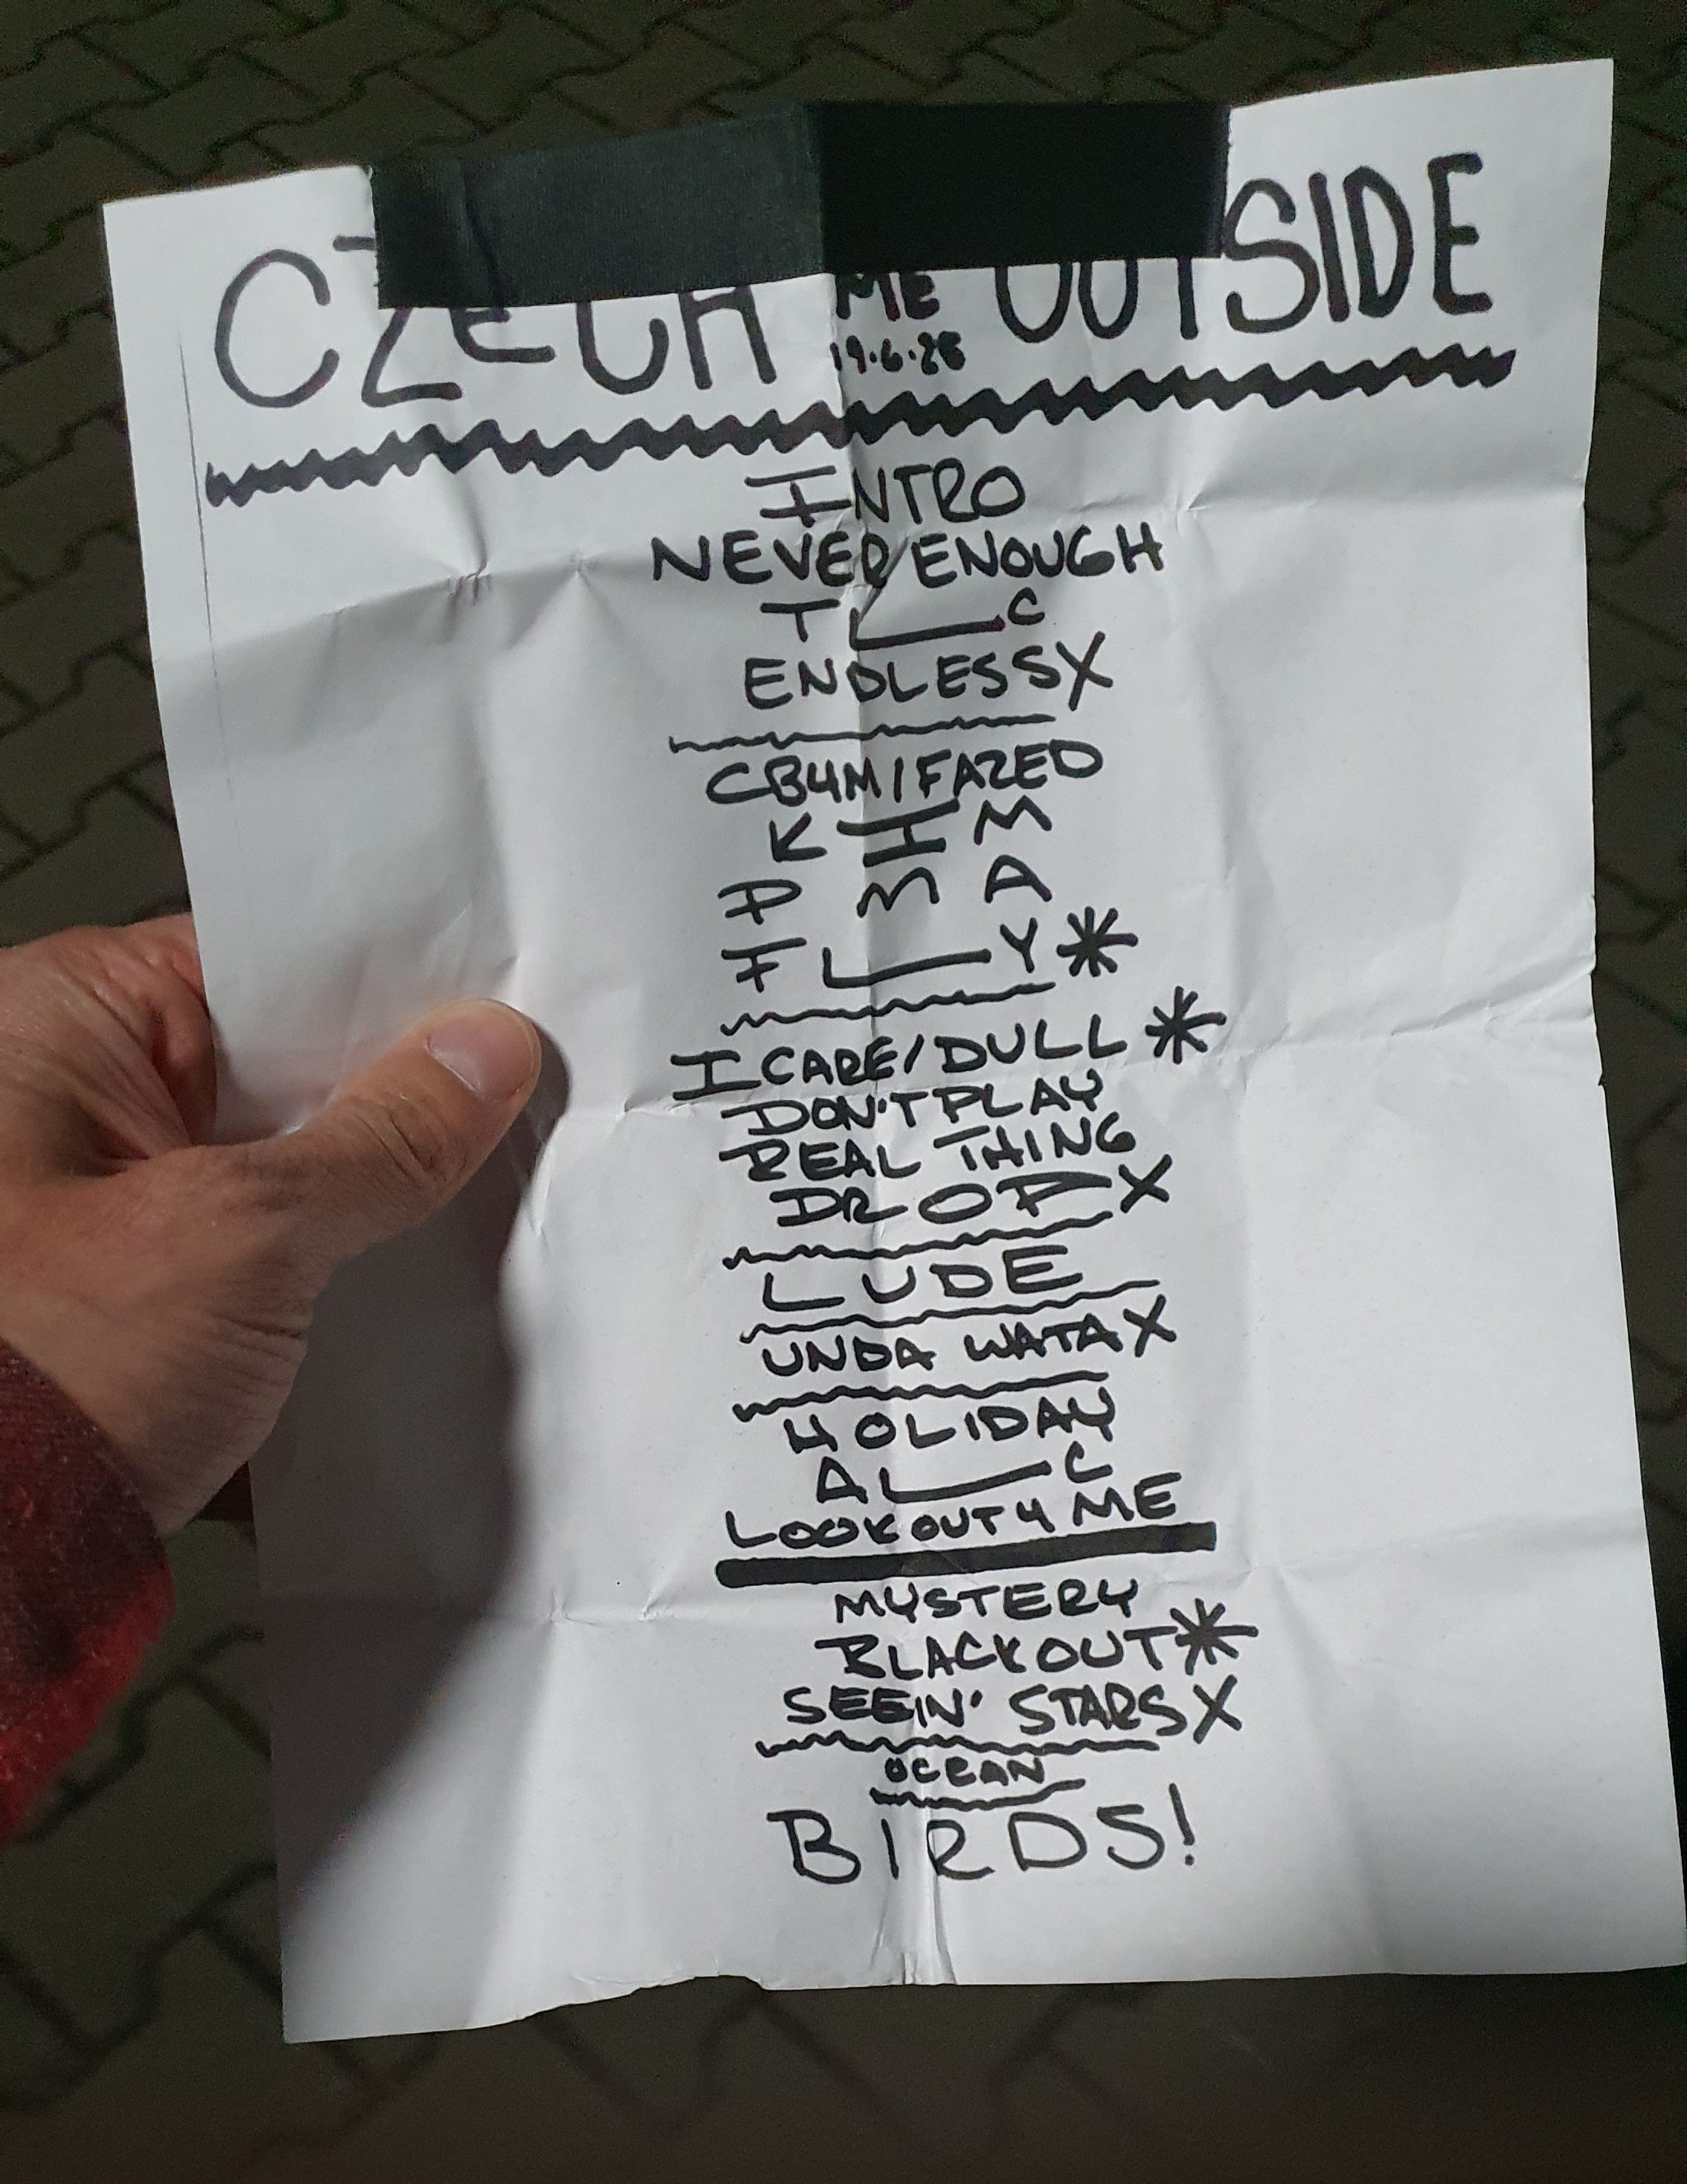 CZECH ME OUTSIDE
19.6.25
INTRO
NEVER ENOUGH
T L C
ENDLESS X
CB4M/FAZED
K I M
P M A
F L Y *
I CARE/DULL *
DON'T PLAY
REAL THING
DROP X
LUDE
UNDA WATA X
HOLIDAY
A L C
LOOK OUT 4 ME
MYSTERY
BLACKOUT *
SEEIN' STARS X
OCEAN
BIRDS!